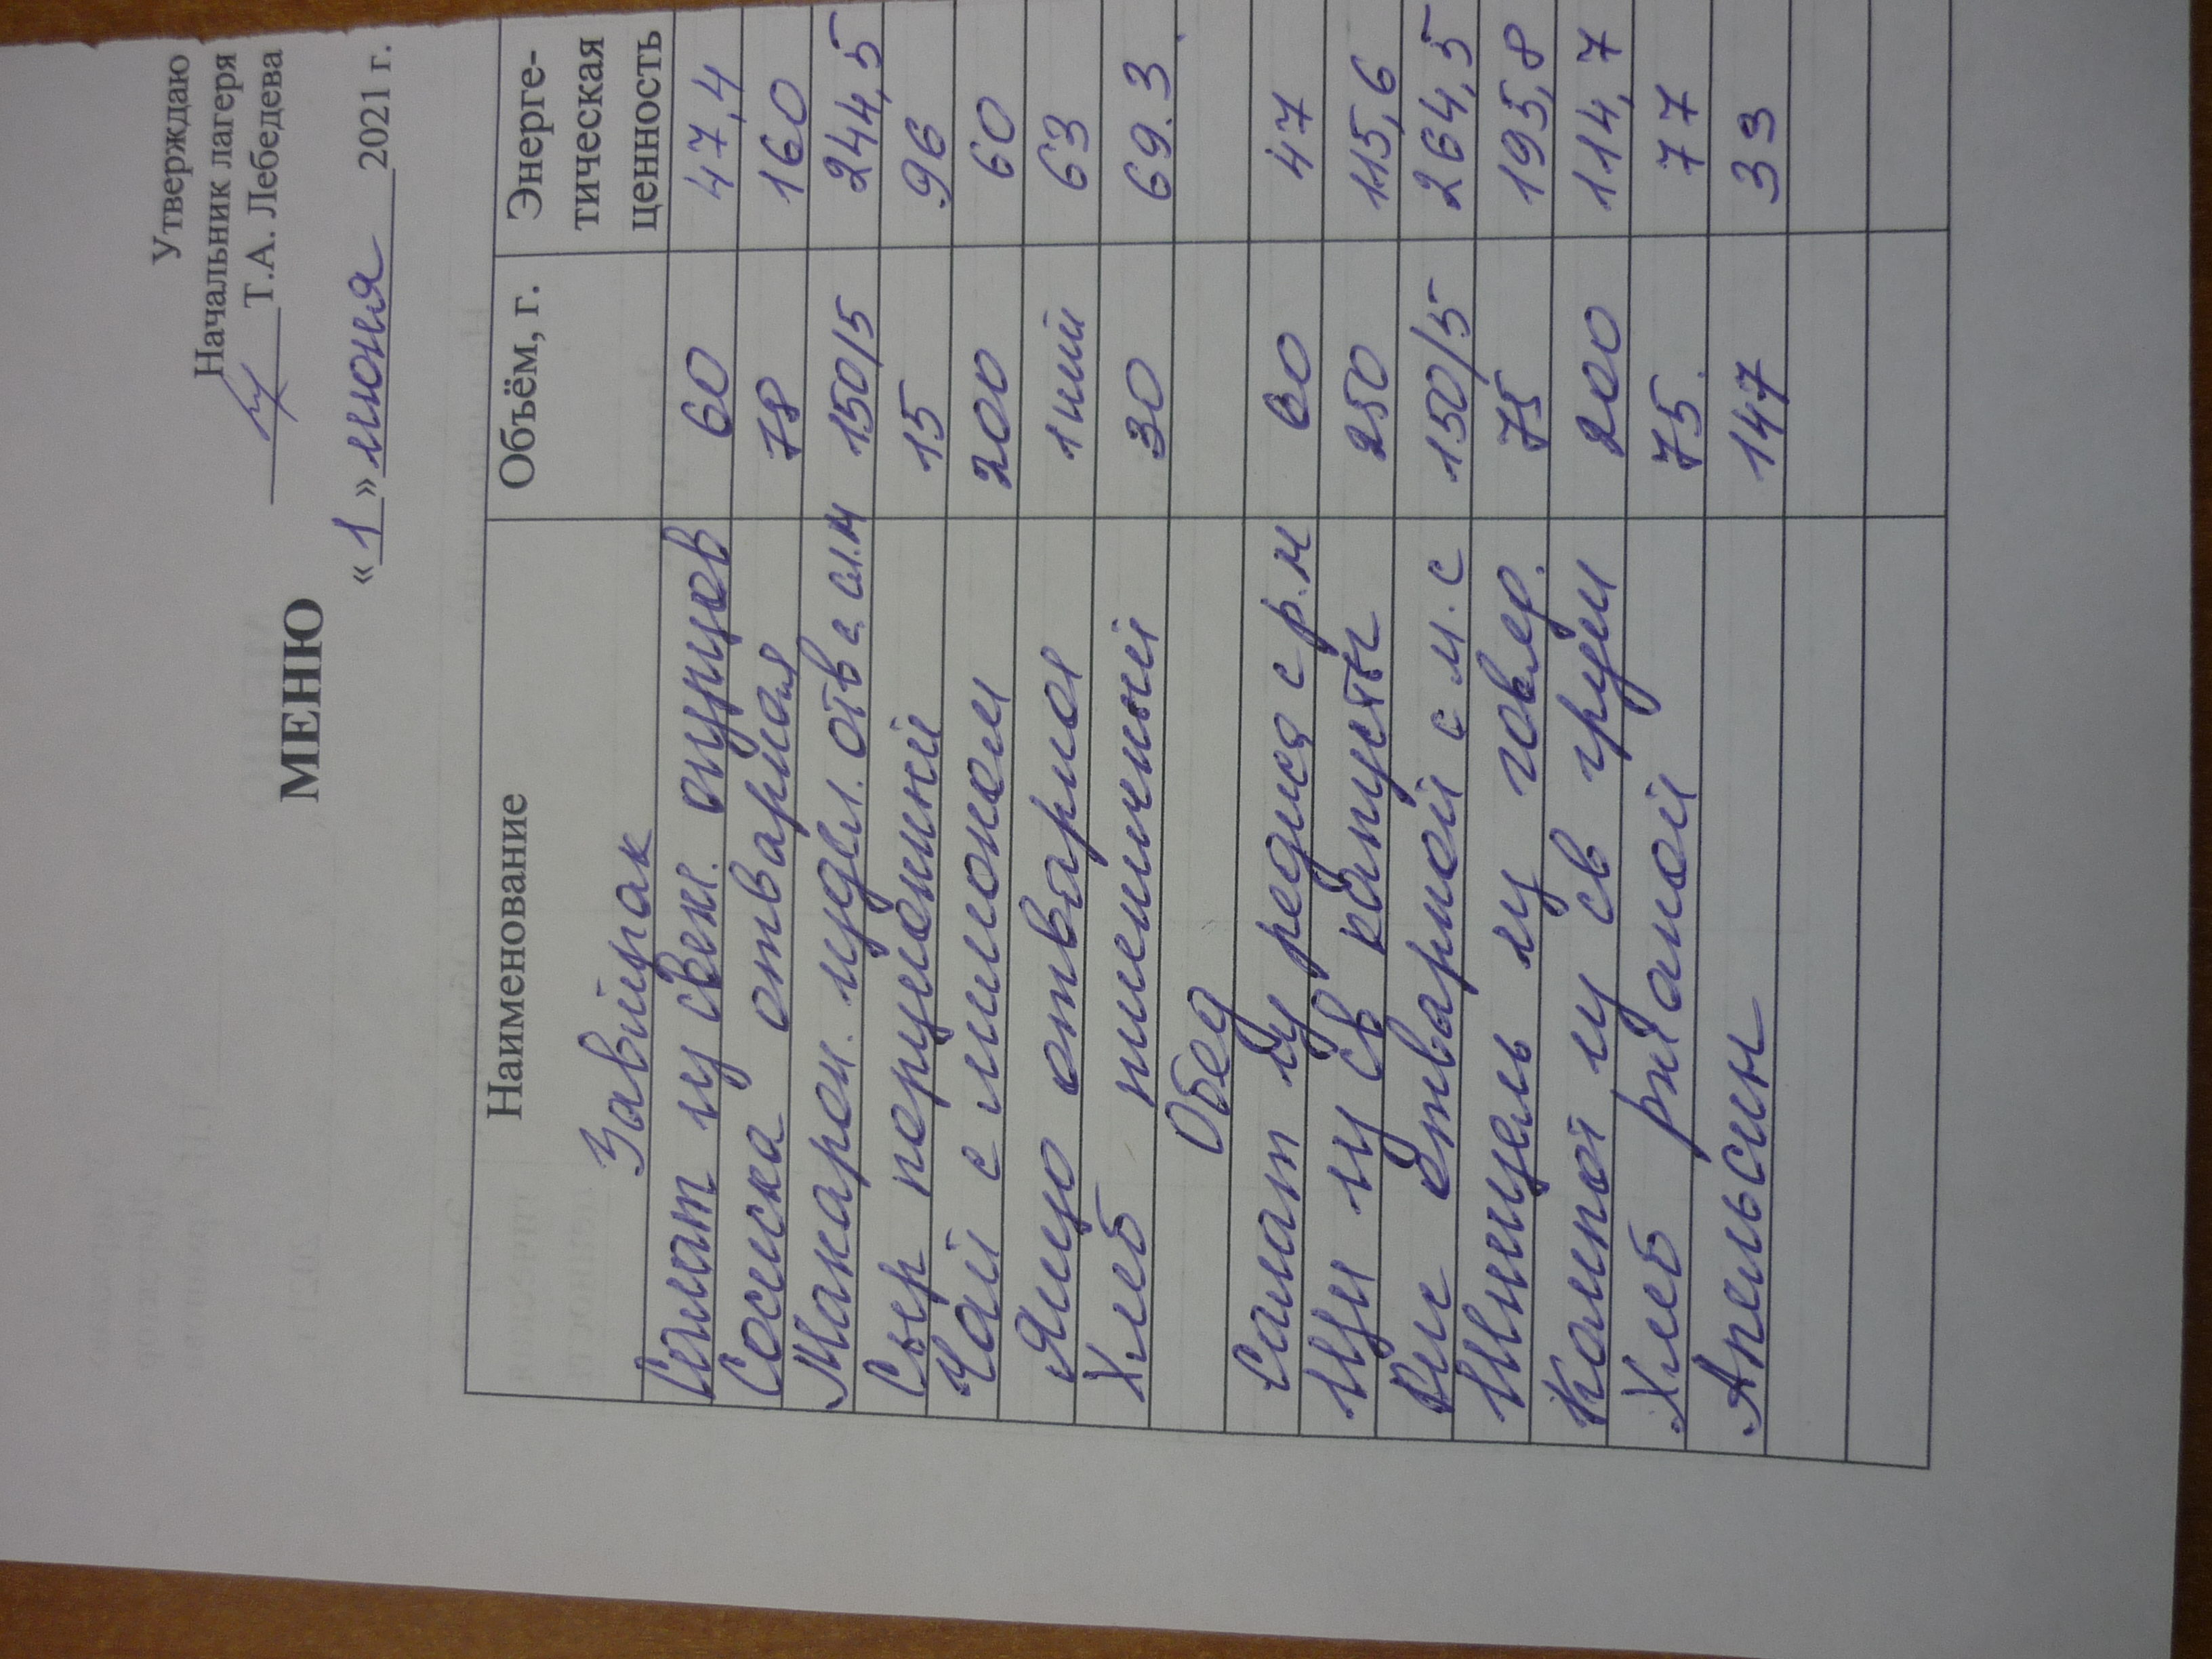 Утверждаю
Начальник лагеря
Т.А. Лебедева
«1» июня 2021 г.
МЕНЮ
Наименование Объём, г. Энерге-тическая ценность
Завтрак
Салат из свеж. огурцов 60 47,4
Сосиска отварная 78 160
Макарон. издел. отв с сл.м 150/5 244,5
Сыр порционный 15 96
Чай с лимоном 200 60
Яйцо отварное 63
Хлеб пшеничный 30 69.3
Обед
Салат из редиса с р.м 60 47
Щи из св капусты 250 115,6
Рис отварной с м.с 150/5 264,5
Шницель из говяд. 75 195,8
Компот из св груш 200 114,7
Хлеб ржаной 75. 77
Апельсин 147 39